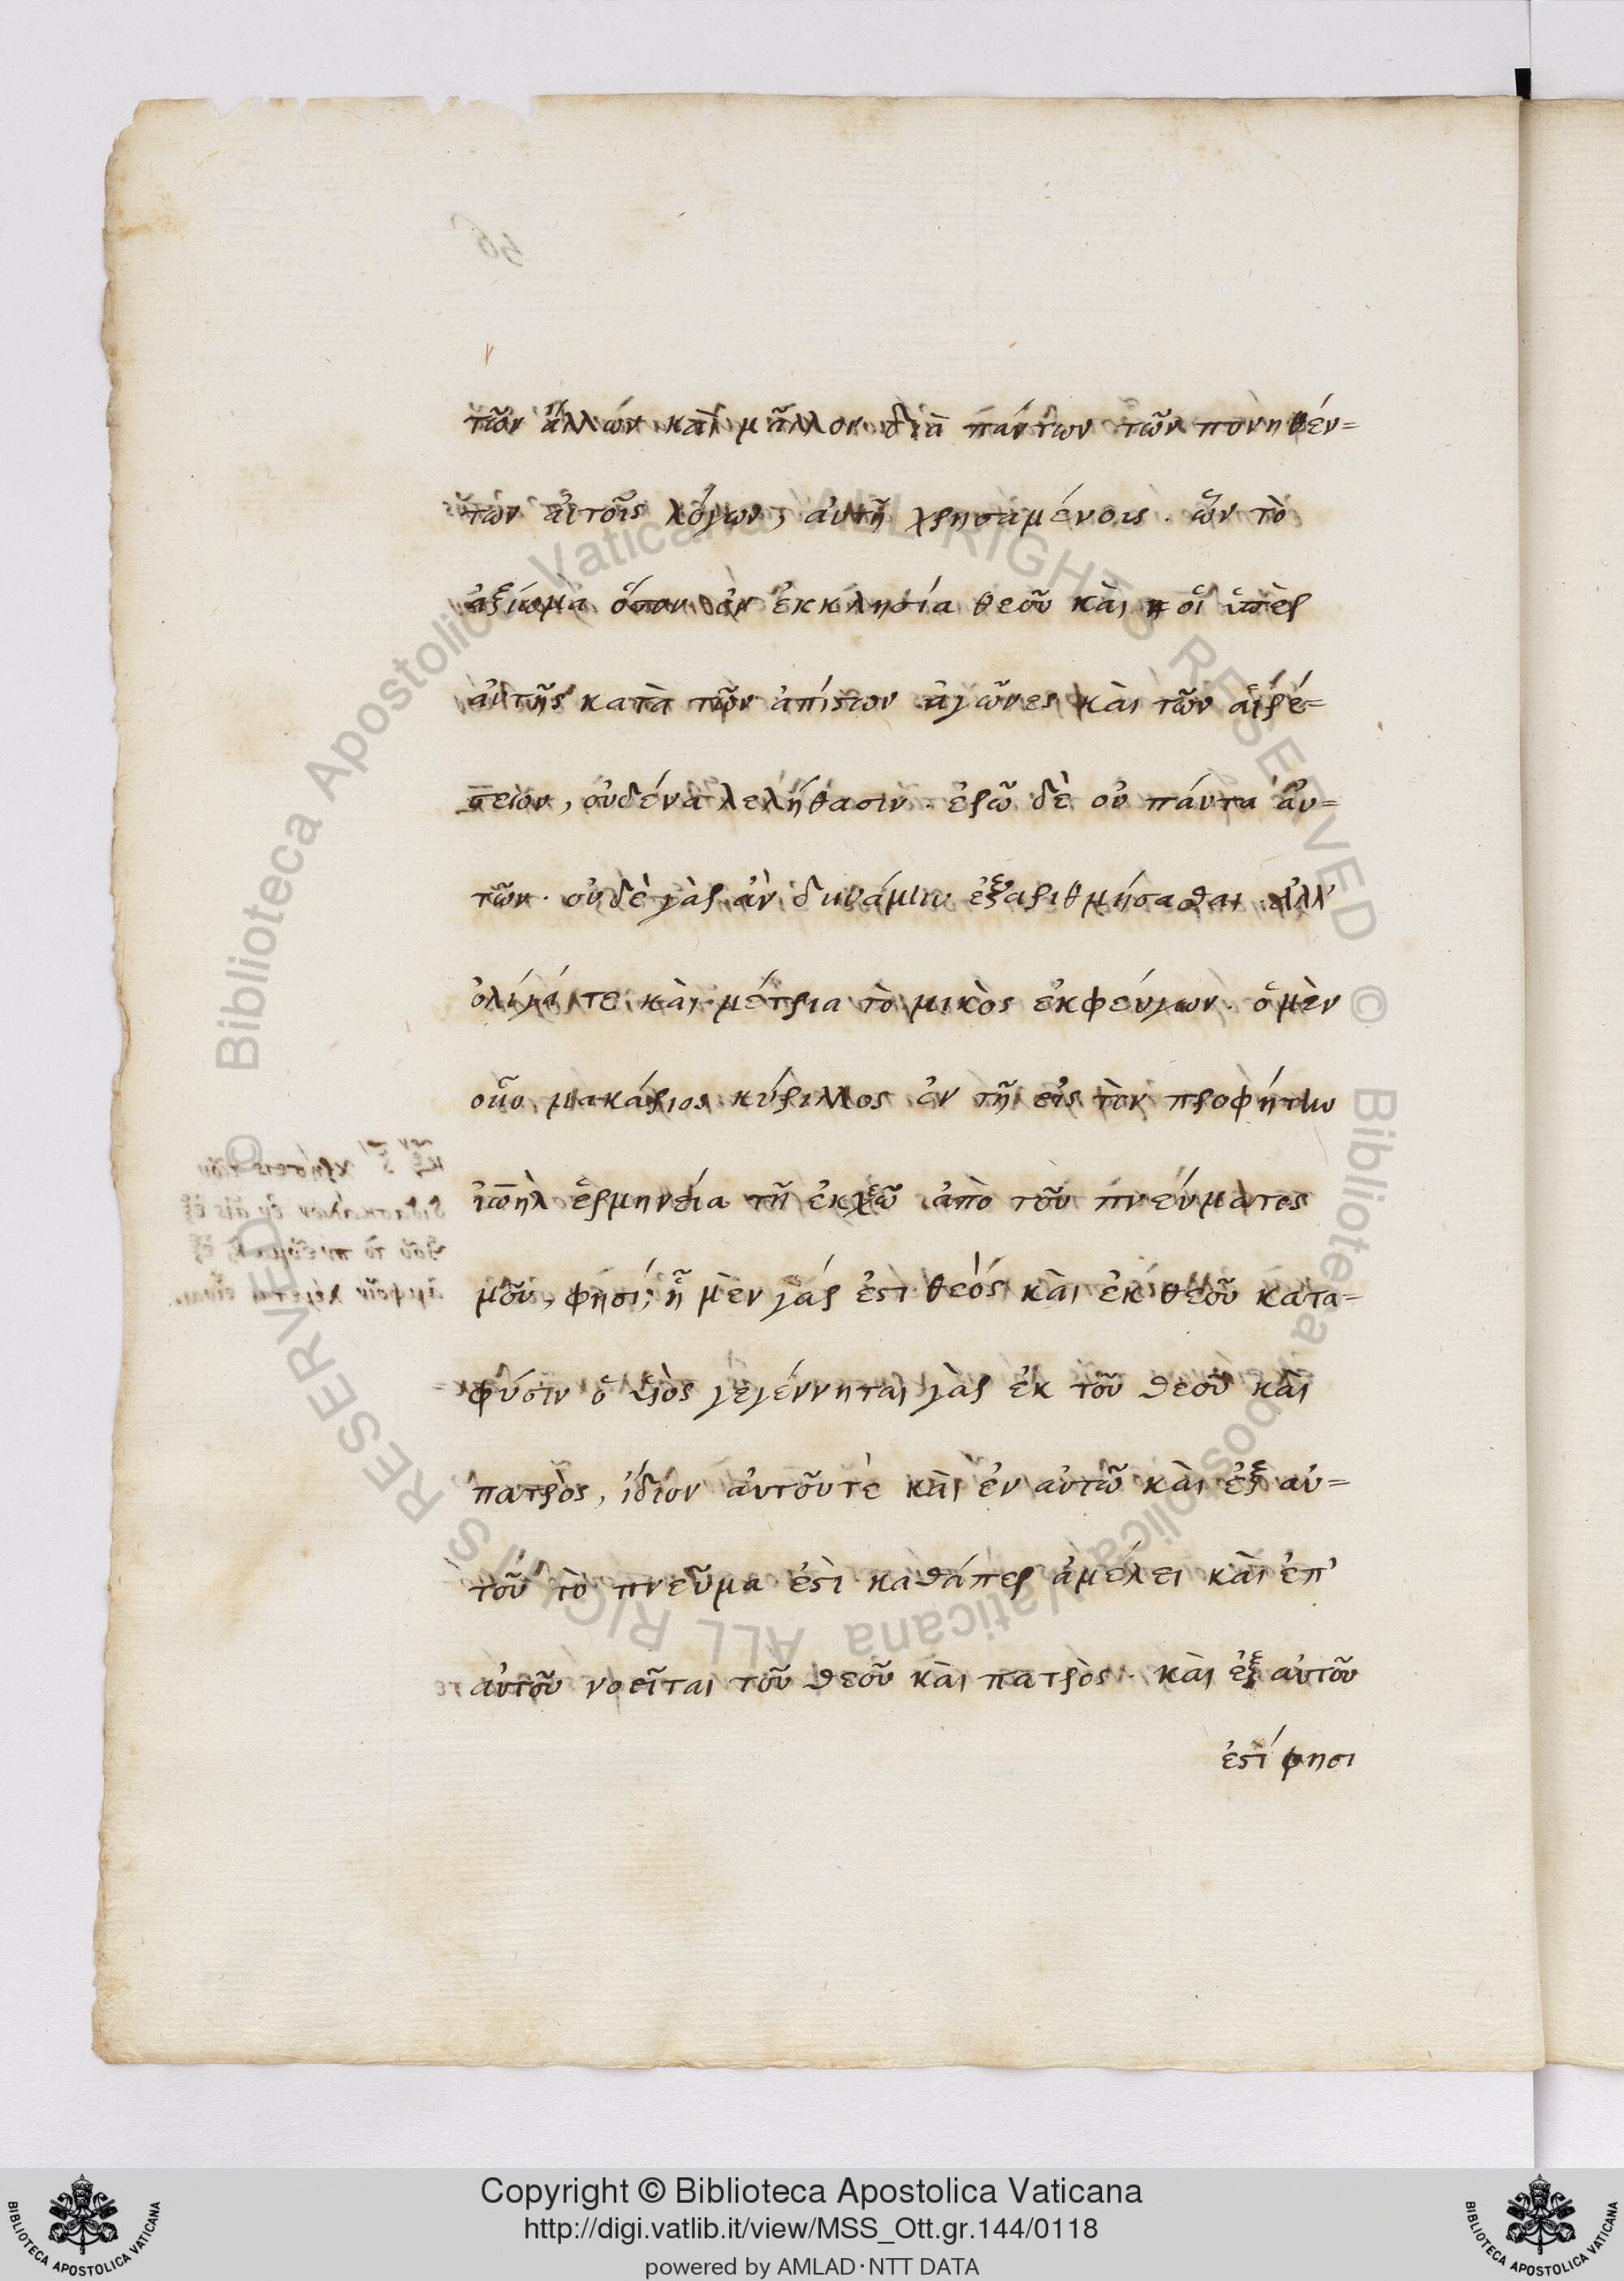 τῶν ἄλλων καὶ μᾶλλον διὰ πάντων τῶν πονηθέν=
των αὐτοῖς λόγων, αὐτῆ χρησαμένοις. ὧν τὸ
ἀξίωμα ὅσον ἐν ἐκκλησία θεοῦ καὶ οἱ ὑπὲρ
αὐτῆς κατὰ τῶν ἀπίστων ἀγῶνες καὶ τῶν αἱρέ=
σεων, οὐδένα λελήθασιν. ἐρῶ δὲ οὐ πάντα αὐ=
τῶν. οὐδὲ γὰρ ἂν δυναίμην ἐξαριθμήσασθαι ἀλλ'
ὀλίγα τε καὶ μέτρια τὸ μικὸς ἐκφεύγων. ὁ μὲν
οὖν μακάριος κύριλλος ἐν τῆ εἰς τὸν προφήτην
ἰωὴλ ἑρμηνεία τῆ ἐκχεῶ ἀπὸ τοῦ πνεύματος
μου, φησί, ἧ μὲν γάρ ἐστι θεός καὶ ἐκ θεοῦ κατα=
φύσιν ὁ υἱὸς γεγέννηται γὰρ ἐκ τοῦ θεοῦ καὶ
πατρὸς, ἴδιον αὐτοῦ τὲ καὶ ἐν αὐτῶ καὶ ἐξ αὐ=
τοῦ τὸ πνεῦμα ἐστὶ καθάπερ ἀμέλει καὶ ἐπ'
αὐτοῦ νοεῖται τοῦ θεοῦ καὶ πατρὸς. καὶ ἐξ αὐτοῦ
ἐστί φησι
Copyright © Biblioteca Apostolica Vaticana
http://digi.vatlib.it/view/MSS_Ott.gr.144/0118
powered by AMLAD·NTT DATA
BIBLIOTECA APOSTOLICA VATICANA
BIBLIOTECA APOSTOLICA VATICANA
© Biblioteca Apostolica Vaticana ALL RIGHTS RESERVED © Biblioteca Apostolica Vaticana ALL RIGHTS RESERVED